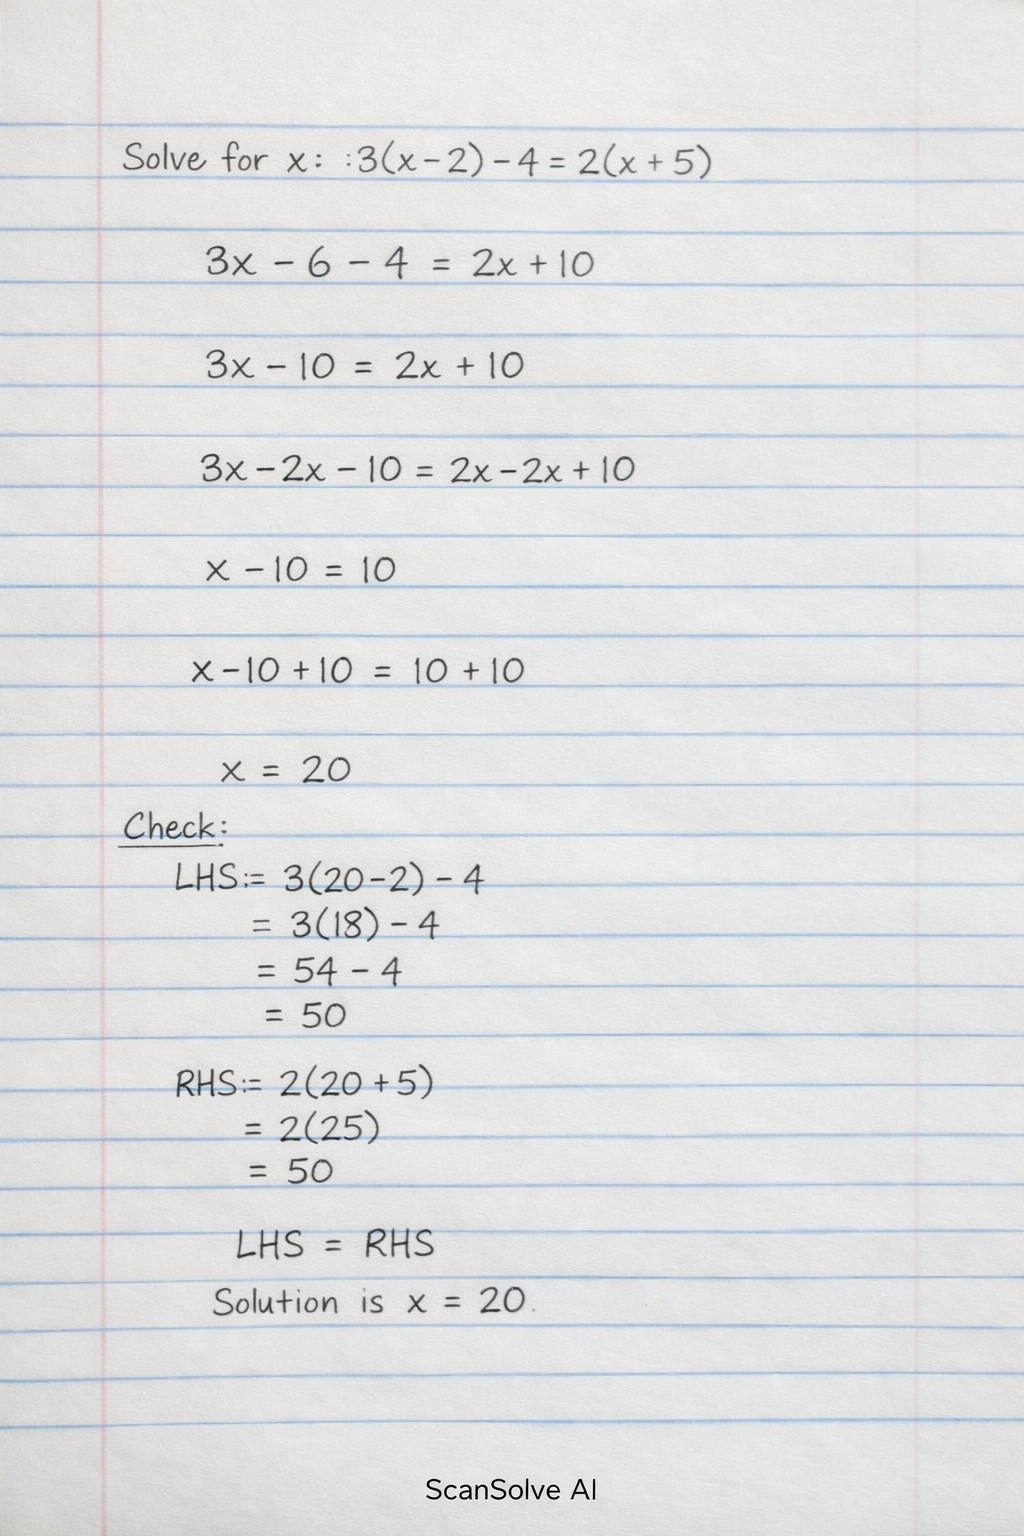 Solve for x: :3(x-2) - 4 = 2(x + 5)
3x - 6 - 4 = 2x + 10
3x - 10 = 2x + 10
3x - 2x - 10 = 2x - 2x + 10
x - 10 = 10
x - 10 + 10 = 10 + 10
x = 20
Check:
LHS:= 3(20-2) - 4
= 3(18) - 4
= 54 - 4
= 50
RHS:= 2(20 + 5)
= 2(25)
= 50
LHS = RHS
Solution is x = 20.
ScanSolve AI